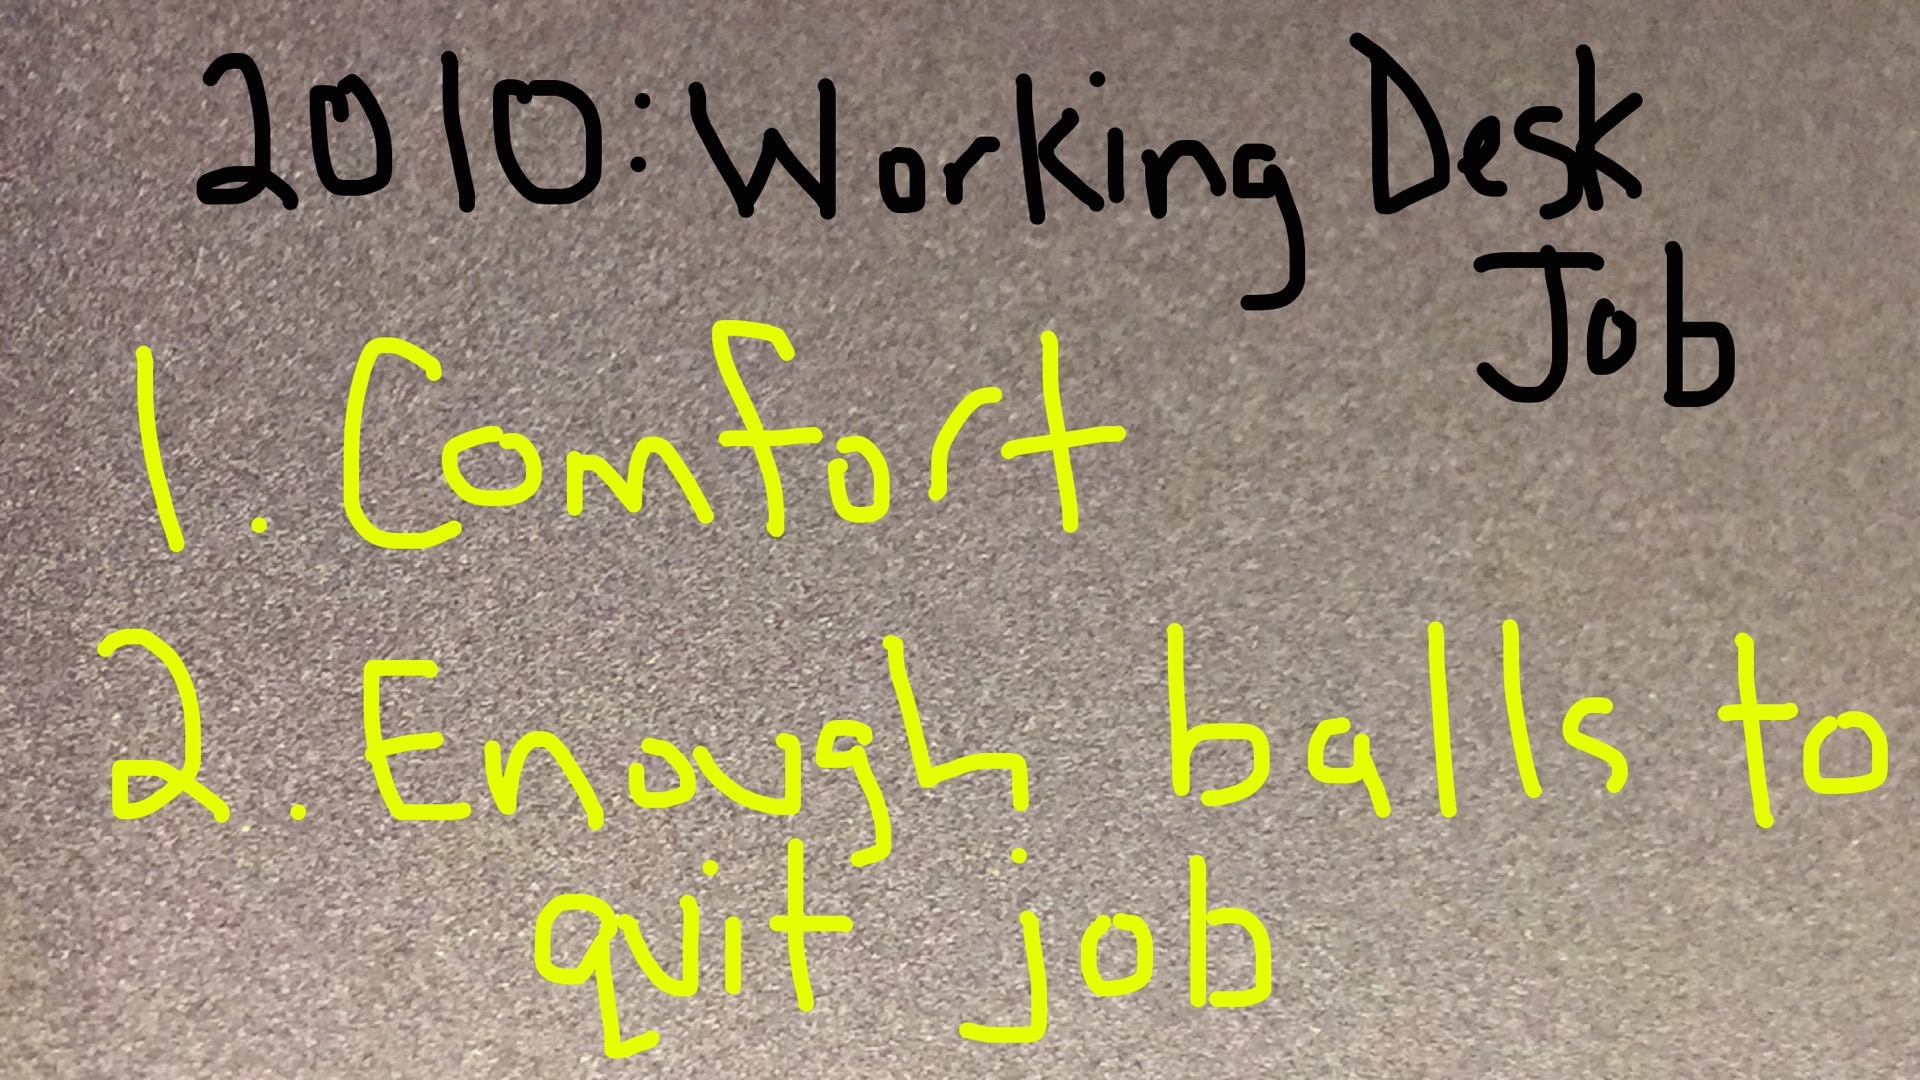 2010: Working Desk
Job
1. Comfort
2. Enough balls to
quit job